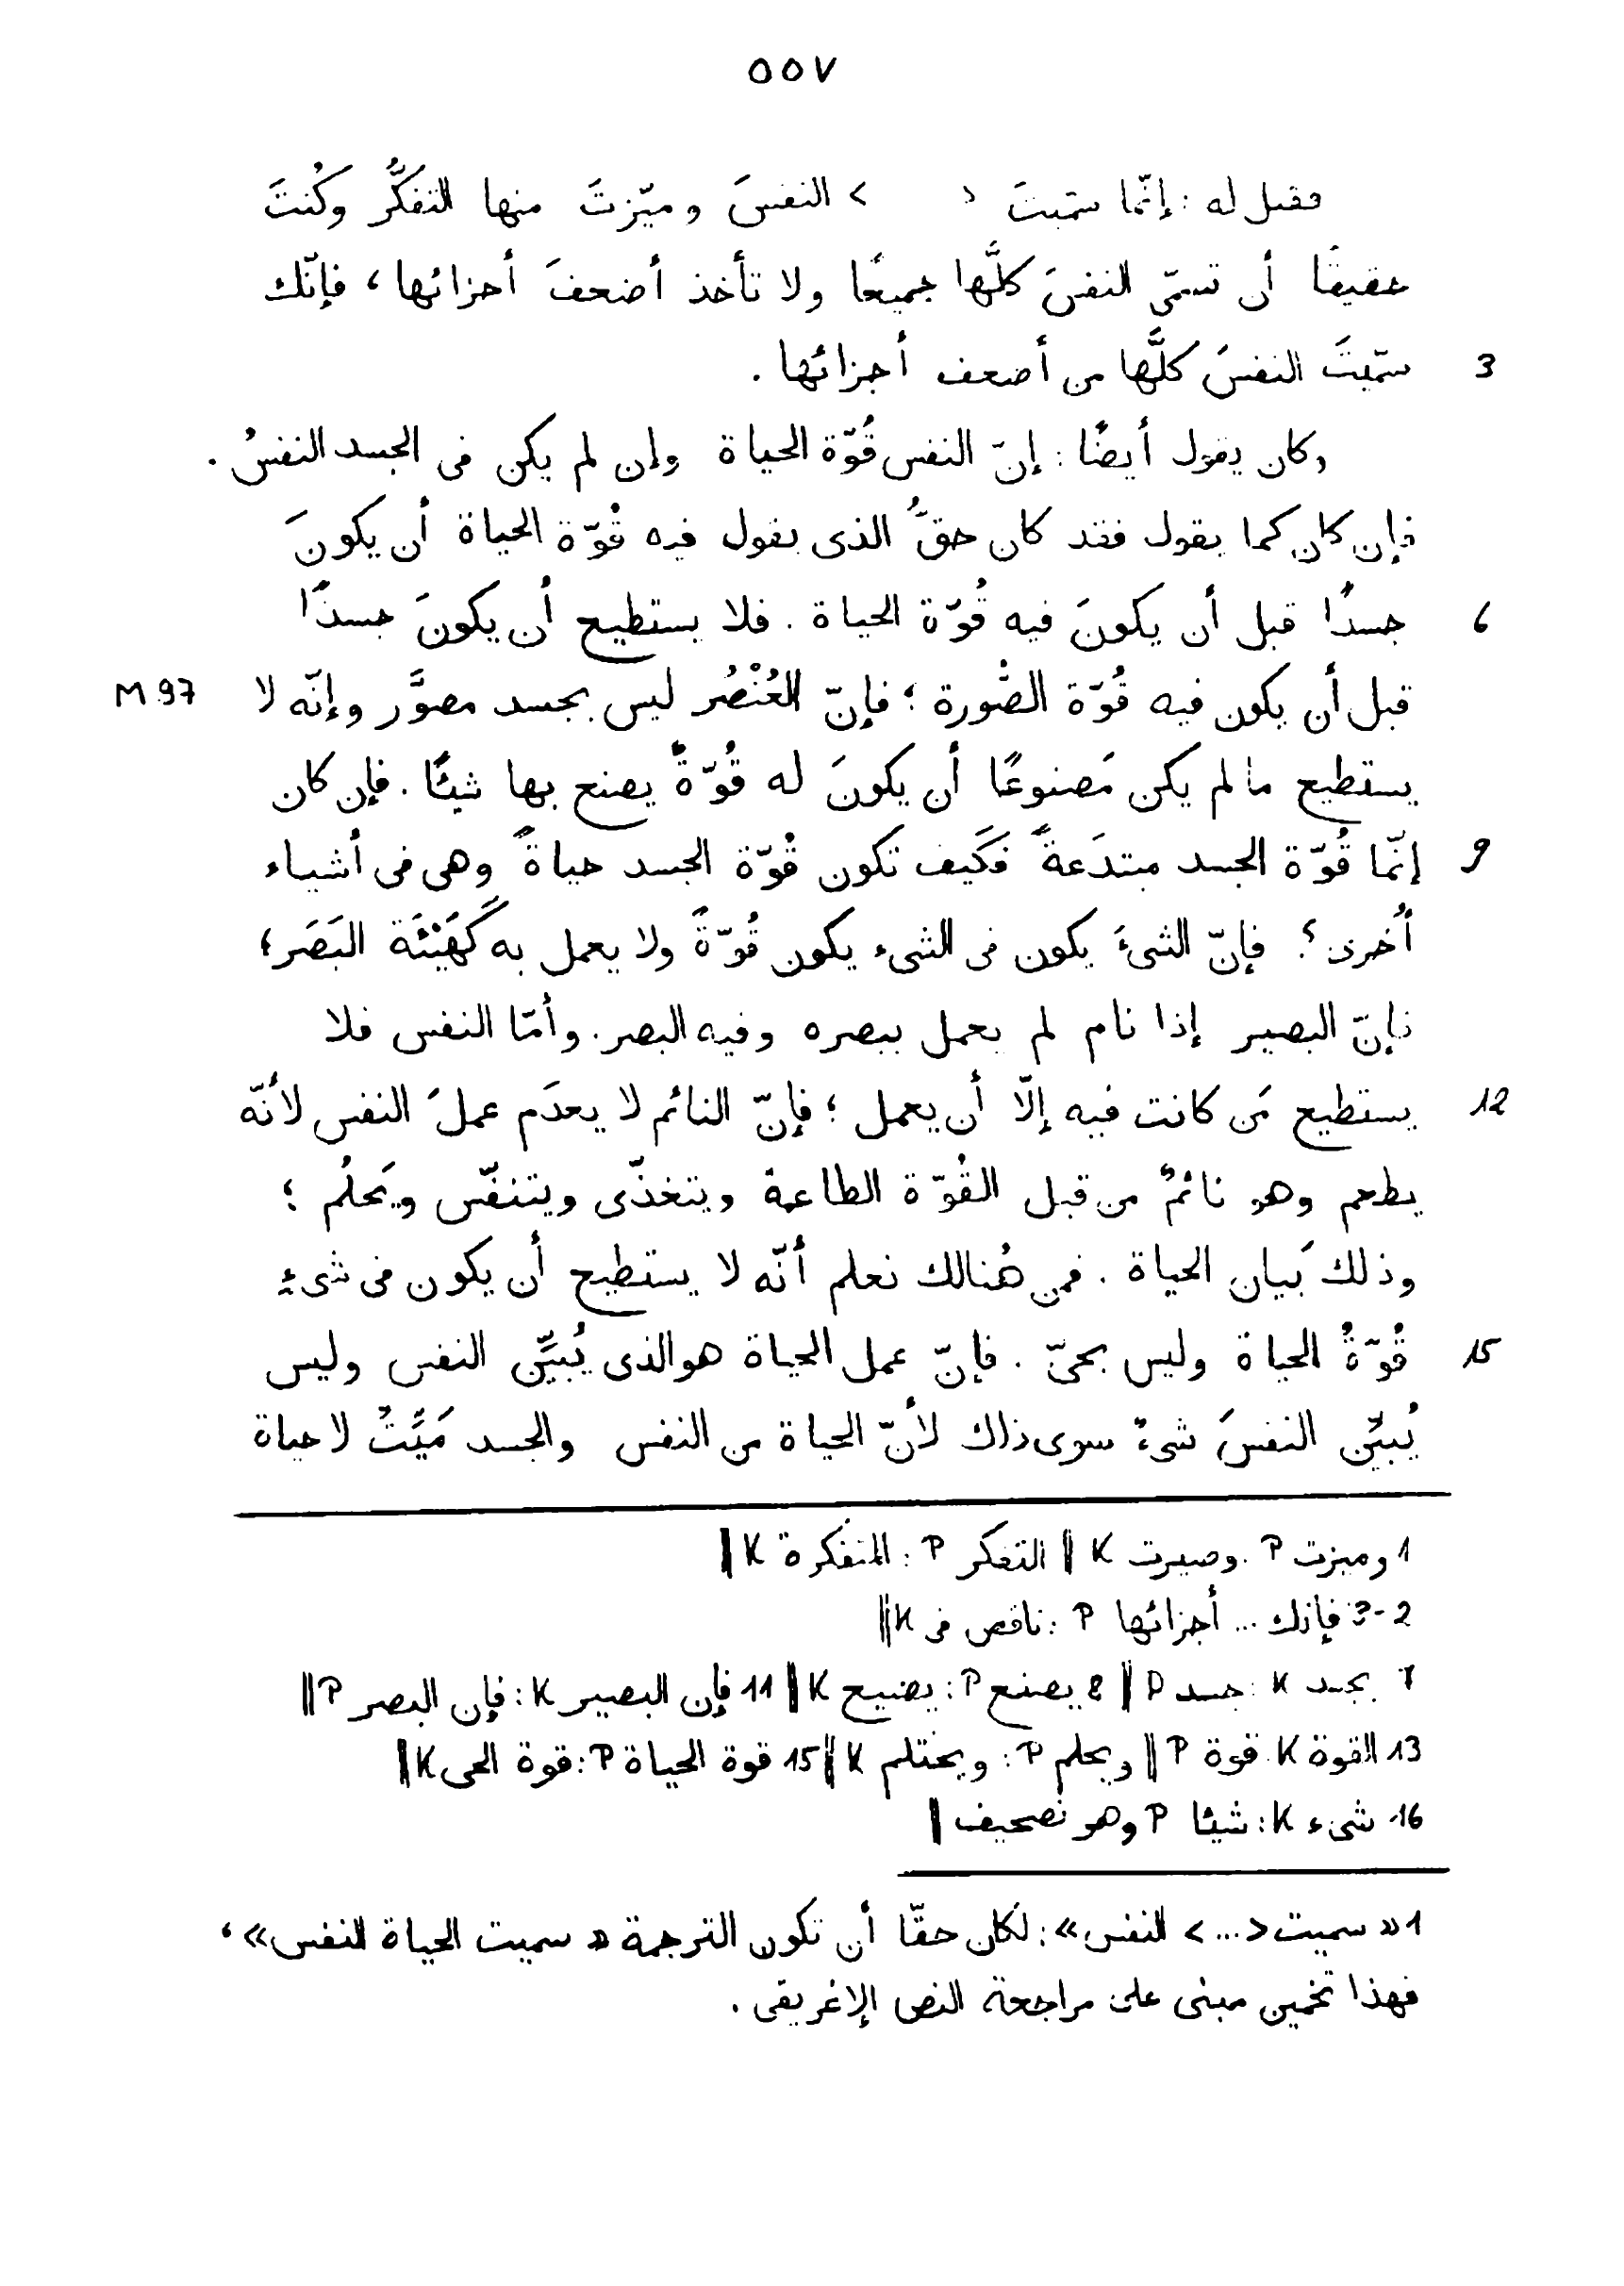 ٥٥٧
فقيل له : إنّما سمّيتَ < > النفسَ وميّزتَ منها التفكُّر وكُنتَ
حقيقًا أن تسمّى النفسَ كلَّها جميعًا ولا تأخذ أضعفَ أجزائها ، فإنّك
3 سمّيتَ النفسَ كلَّها من أضعف أجزائها .
وكان يقول أيضًا : إنّ النفس قُوّة الحياة وإن لم يكن فى الجسد النفسُ .
فإن كان كما يقول فقد كان حقُّ الذى يقول فيه قُوّة الحياة أن يكونَ
6 جسدًا قبل أن يكونَ فيه قُوّة الحياة . فلا يستطيع أن يكونَ جسدًا
قبل أن يكون فيه قُوّة الصُّورة ؛ فإنّ العُنْصُر ليس بجسد مصوَّر وإنّه لا M 97
يستطيع ما لم يكن مَصنوعًا أن يكونَ له قُوّةٌ يصنع بها شيئًا . فإن كان
9 إنّما قُوّة الجسد مبتدَعةً فكَيف تكون قُوّة الجسد حياةً وهى فى أشياء
أُخرى ؟ فإنّ الشىءَ يكون فى الشىء يكون قُوّةً ولا يعمل به كَهَيْئَة البَصَر ؛
فإنّ البصير إذا نام لم يعمل ببصره وفيه البصر . وأمّا النفس فلا
12 يستطيع مَن كانت فيه إلّا أن يعمل ؛ فإنّ النائم لا يعدَم عملَ النفس لأنّه
يطعم وهو نائمٌ من قبل القُوّة الطاعمة ويتغذّى ويتنفّس ويَحلُم ؛
وذلك بَيان الحياة . فمن هُنالك نعلم أنّه لا يستطيع أن يكون فى شىءٍ
15 قُوّةُ الحياة وليس بحىّ . فإنّ عمل الحياة هو الذى يُبيِّن النفس وليس
يُبيِّن النفسَ شىءٌ سوى ذلك لأنّ الحياة من النفس والجسد مَيِّتٌ لا حياة
1 وميزت P : وصيرت K ‖ التفكر P : المتفكرة K ‖
2-3 فإنك ... أجزائها P : ناقص فى K ‖
7 بجسد K : جسد P ‖ 8 يصنع P : يضيع K ‖ 11 فإن البصير K : فإن البصر P ‖
13 القوة K : قوة P ‖ ويحلم P : ويحتلم K ‖ 15 قوة الحياة P : قوة الحى K ‖
16 شىء K : شيئا P وهو تصحيف ‖
1 « سميت < ... > النفس » : لكان حقّا أن تكون الترجمة « سميت الحياة النفس » ،
فهذا تخمين مبنى على مراجعة النص الإغريقى .